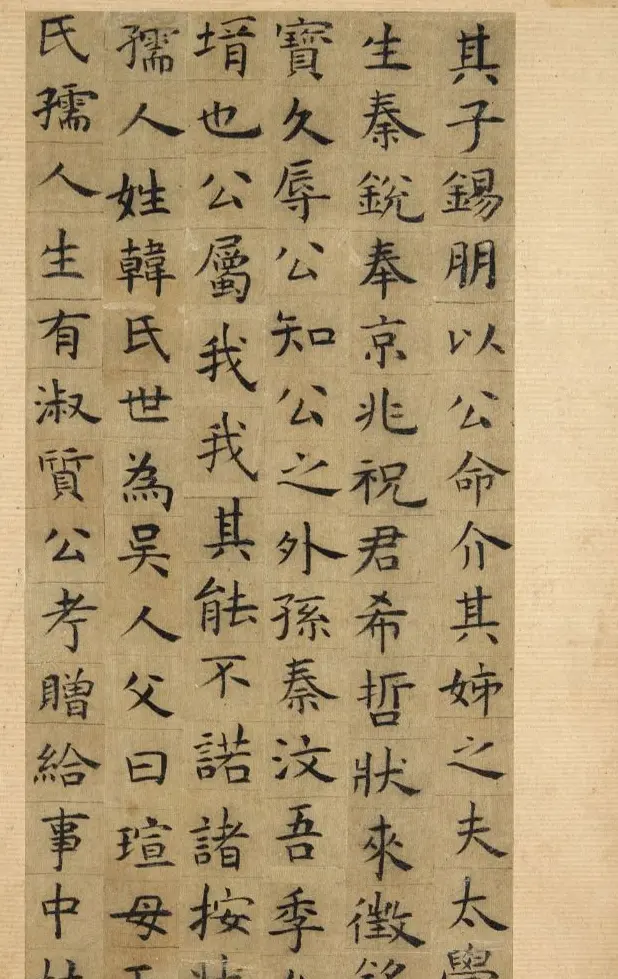 其子錫朋以公命介其姊之夫太學
生秦銳奉京兆祝君希哲狀來徵銘
寶久辱公知公之外孫秦汶吾季
壻也公屬我我其能不諾諸按狀
孺人姓韓氏世為吳人父曰瑄母
氏孺人生有淑質公考贈給事中